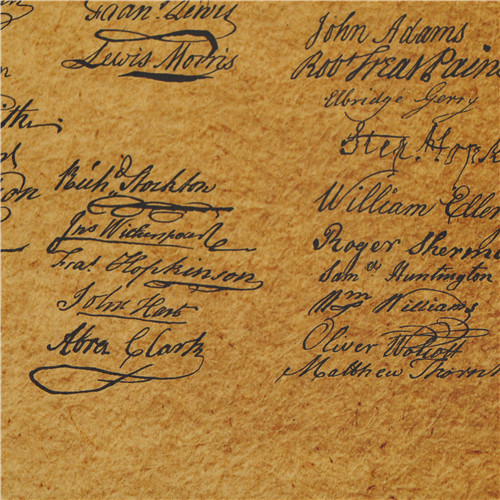 Fran.s Lewis
Lewis Morris
Rich.d Stockton
Jn.o Witherspoon
Fra.s Hopkinson
John Hart
Abra Clark
John Adams
Rob.t Treat Pain
Elbridge Gerry
Step. Hopk
William Eller
Roger Sherm
Sam.el Huntington
W.m Williams
Oliver Wolcott
Matthew Thornt